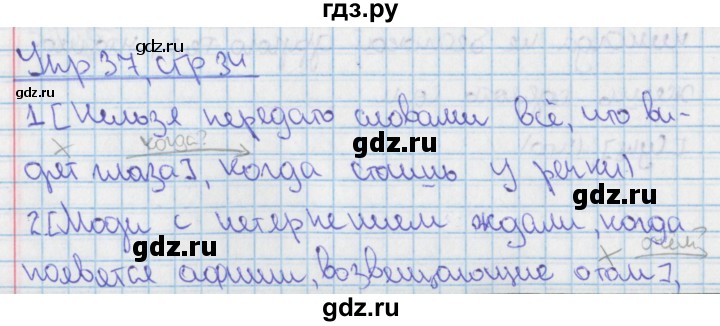 гдз.ру
gdz.ru
gdz.ru
Упр 37, стр 34
1 [Нельзя передать словами всё, что ви-
gdz.ru
когда?
х
gdz.ru
дят глаза], когда стоишь у речки)
gdz.ru
2 [Люди с нетерпением ждали, когда
gdz.ru
о чем?
х
появятся афиши, возвещающие о том],
gdz.ru
gdz.ru